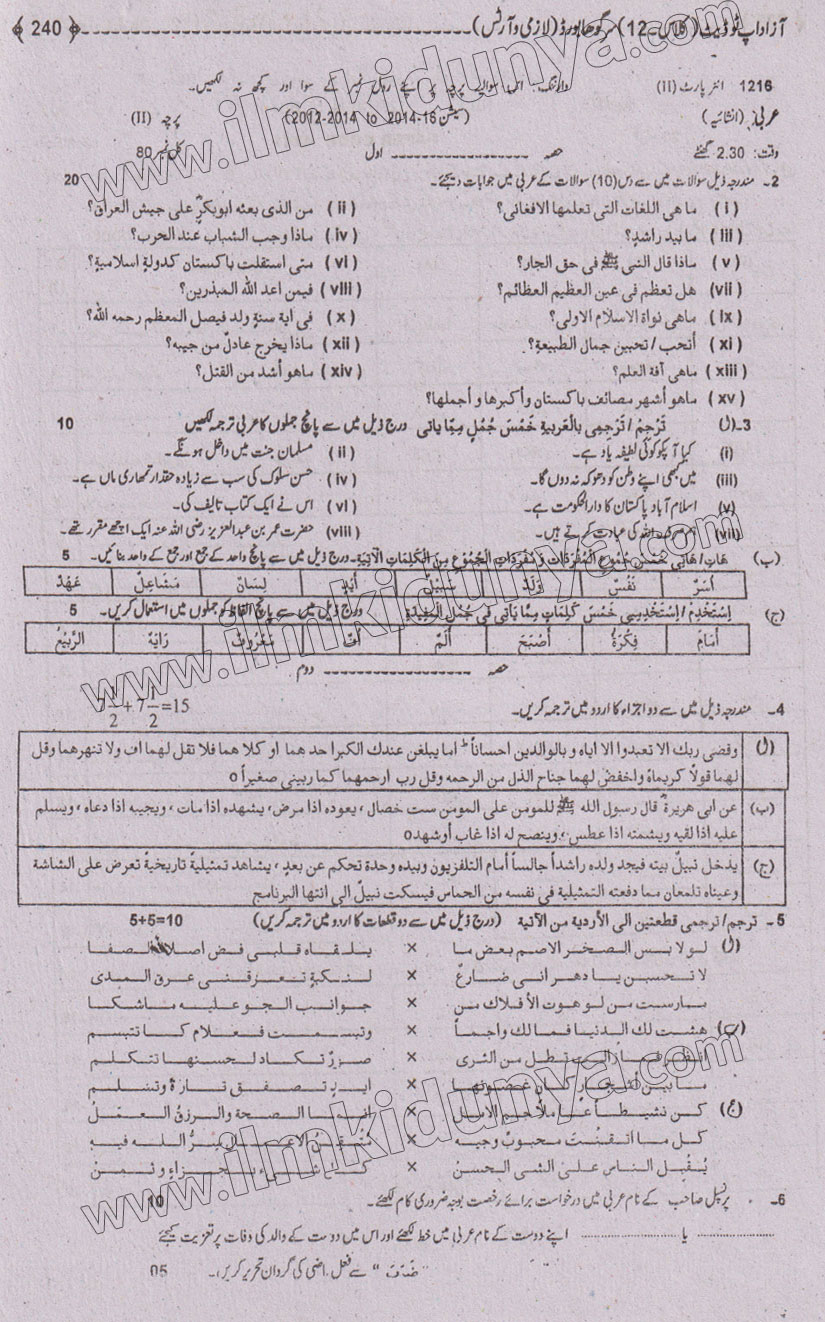 آزاد اپ ٹو ڈیٹ (کلاس-12) سرگودھا بورڈ (لازمی و آرٹس) ﴿240﴾
1216 انٹر پارٹ (II) وارننگ: اس سوالیہ پرچہ پر اپنے رول نمبر کے سوا اور کچھ نہ لکھیں۔
عربی (انشائیہ) (سیشن 16-2014 to 2014-2012) پرچہ (II)
وقت: 2.30 گھنٹے حصہ ---------- اول کل نمبر 80
2۔ مندرجہ ذیل سوالات میں سے دس (10) سوالات کے عربی میں جوابات دیجئے۔ 20
(i) ما هى اللغات التى تعلمها الافغانى؟ (ii) من الذى بعثه ابوبكرؓ على جيش العراق؟
(iii) ما بيد راشدٍ؟ (iv) ماذا وجب الشباب عند الحرب؟
(v) ماذا قال النبى ﷺ فى حق الجار؟ (vi) متى استقلت باكستان كدولةٍ اسلاميةٍ؟
(vii) هل تعظم فى عين العظيم العظائم؟ (viii) فيمن اعد الله المبذرين؟
(ix) ماهى نواة الاسلام الاولى؟ (x) فى اية سنةٍ ولد فيصل المعظم رحمه الله؟
(xi) أتحب / تحبين جمال الطبيعةِ؟ (xii) ماذا يخرج عادلٌ من جيبه؟
(xiii) ماهى آفة العلم؟ (xiv) ماهو أشد من القتل؟
(xv) ماهو أشهر مصائف باكستان وأكبرها و أجملها؟
3۔ (ا) تَرْجِمْ / تَرْجِمِى بِالْعَرَبِيةِ خَمْسَ جُمُلٍ مِمَّا ياتى درج ذیل میں سے پانچ جملوں کا عربی ترجمہ لکھیں 10
(i) کیا آپ کو کوئی لطیفہ یاد ہے۔ (ii) مسلمان جنت میں داخل ہونگے۔
(iii) میں کبھی اپنے وطن کو دھوکہ نہ دوں گا۔ (iv) حسن سلوک کی سب سے زیادہ حقدار تمھاری ماں ہے۔
(v) اسلام آباد پاکستان کا دارالحکومت ہے۔ (vi) اس نے ایک کتاب تالیف کی۔
(vii) اللہ کی عبادت کرتے ہیں۔ (viii) حضرت عمر بن عبدالعزیز رضی اللہ عنہ ایک اچھے مقرر تھے۔
(ب) هَاتِ / هَاتِى خَمْسَ جُمُوعِ الْمُفْرَدَاتِ وَ مُفْرَدَاتِ الْجُمُوْعِ مِنَ الْكَلِمَاتِ الْآتِيَةِ۔ درج ذیل میں سے پانچ واحد کے جمع اور جمع کے واحد بنائیں۔ 5
نَفْسٌ وَلَدٌ سَبِيْلٌ لِسَانٌ مَشَاعِلُ عَهْدٌ
(ج) اِسْتَخْدِمْ / اِسْتَخْدِمِى خَمْسَ كَلِمَاتٍ مِمَّا يَاتِى فِى جُمَلٍ مُفِيْدَةٍ درج ذیل میں سے پانچ الفاظ کو جملوں میں استعمال کریں۔ 5
أَمَامَ فِكْرَةٌ أَصْبَحَ أَلَمٌ رَايَةٌ الرَّبِيْعُ
حصہ ---------- دوم
4۔ مندرجہ ذیل میں سے دو اجزاء کا اردو میں ترجمہ کریں۔ 7 1/2 + 7 1/2 = 15
(ا) وقضى ربك الا تعبدوا الا اياه و بالوالدين احساناً ط اما يبلغن عندك الكبر احد هما او كلا هما فلا تقل لهما اف ولا تنهرهما وقل
لهما قولاً كريماه واخفض لهما جناح الذل من الرحمه وقل رب ارحمهما كما ربينى صغيراً o
(ب) عن ابى هريرةؓ قال رسول الله ﷺ للمومن على المومن ست خصال ، يعوده اذا مرض، يشهده اذا مات ، ويجيبه اذا دعاه ، ويسلم
عليه اذا لقيه ويشمته اذا عطس، وينصح له اذا غاب أوشهد o
(ج) يدخل نبيلٌ بيته فيجد ولده راشداً جالساً أمام التلفزيون وبيده وحدة تحكم عن بعدٍ ، يشاهد تمثيليةً تاريخيةً تعرض على الشاشة
وعيناه تلمعان مما دفعته التمثيلية فى نفسه من الحماس فيسكت نبيلٌ الى انتها البرنامج
5۔ ترجم / ترجمى قطعتين الى الأردية من الآتية (درج ذیل میں سے دو قطعات کا اردو میں ترجمہ کریں) 5+5=10
(ا) لو لا بس الصخر الاصم بعض ما × يلقاه قلبى فض اصلاد الصفا
لا تحسبن يا دهر انى ضارعٌ × لنكبةٍ تعرقنى عرق المدى
مارست من لو هوت الأفلاك من × جوانب الجو عليه ماشكا
(ب) هشت لك الدنيا فما لك واجماً × وتبسمت فعلام كا تتبسم
تطل من الثرى × صورٌ تكاد لحسنها تتكلم
ما بين أشجارٍ كأن غصونها × ايدٍ تصفق تارة وتسلم
(ج) كن نشيطاً عاملاً جم الامل × انما الصحة والرزق العمل
كل ما أتقنت محبوبٌ وجيه × متقن الاعمال سر الله فيه
يُقبل الناس على الشى الحسن ×
6۔ پرنسپل صاحب کے نام عربی میں درخواست برائے رخصت بوجہ ضروری کام لکھئے۔ 10
---------- یا ---------- اپنے دوست کے نام عربی میں خط لکھئے اور اس میں دوست کے والد کی وفات پر تعزیت کیجئے
سے فعل ماضی کی گردان تحریر کریں۔ 05
www.ilmkidunya.com
www.ilmkidunya.com
www.ilmkidunya.com
www.ilmkidunya.com